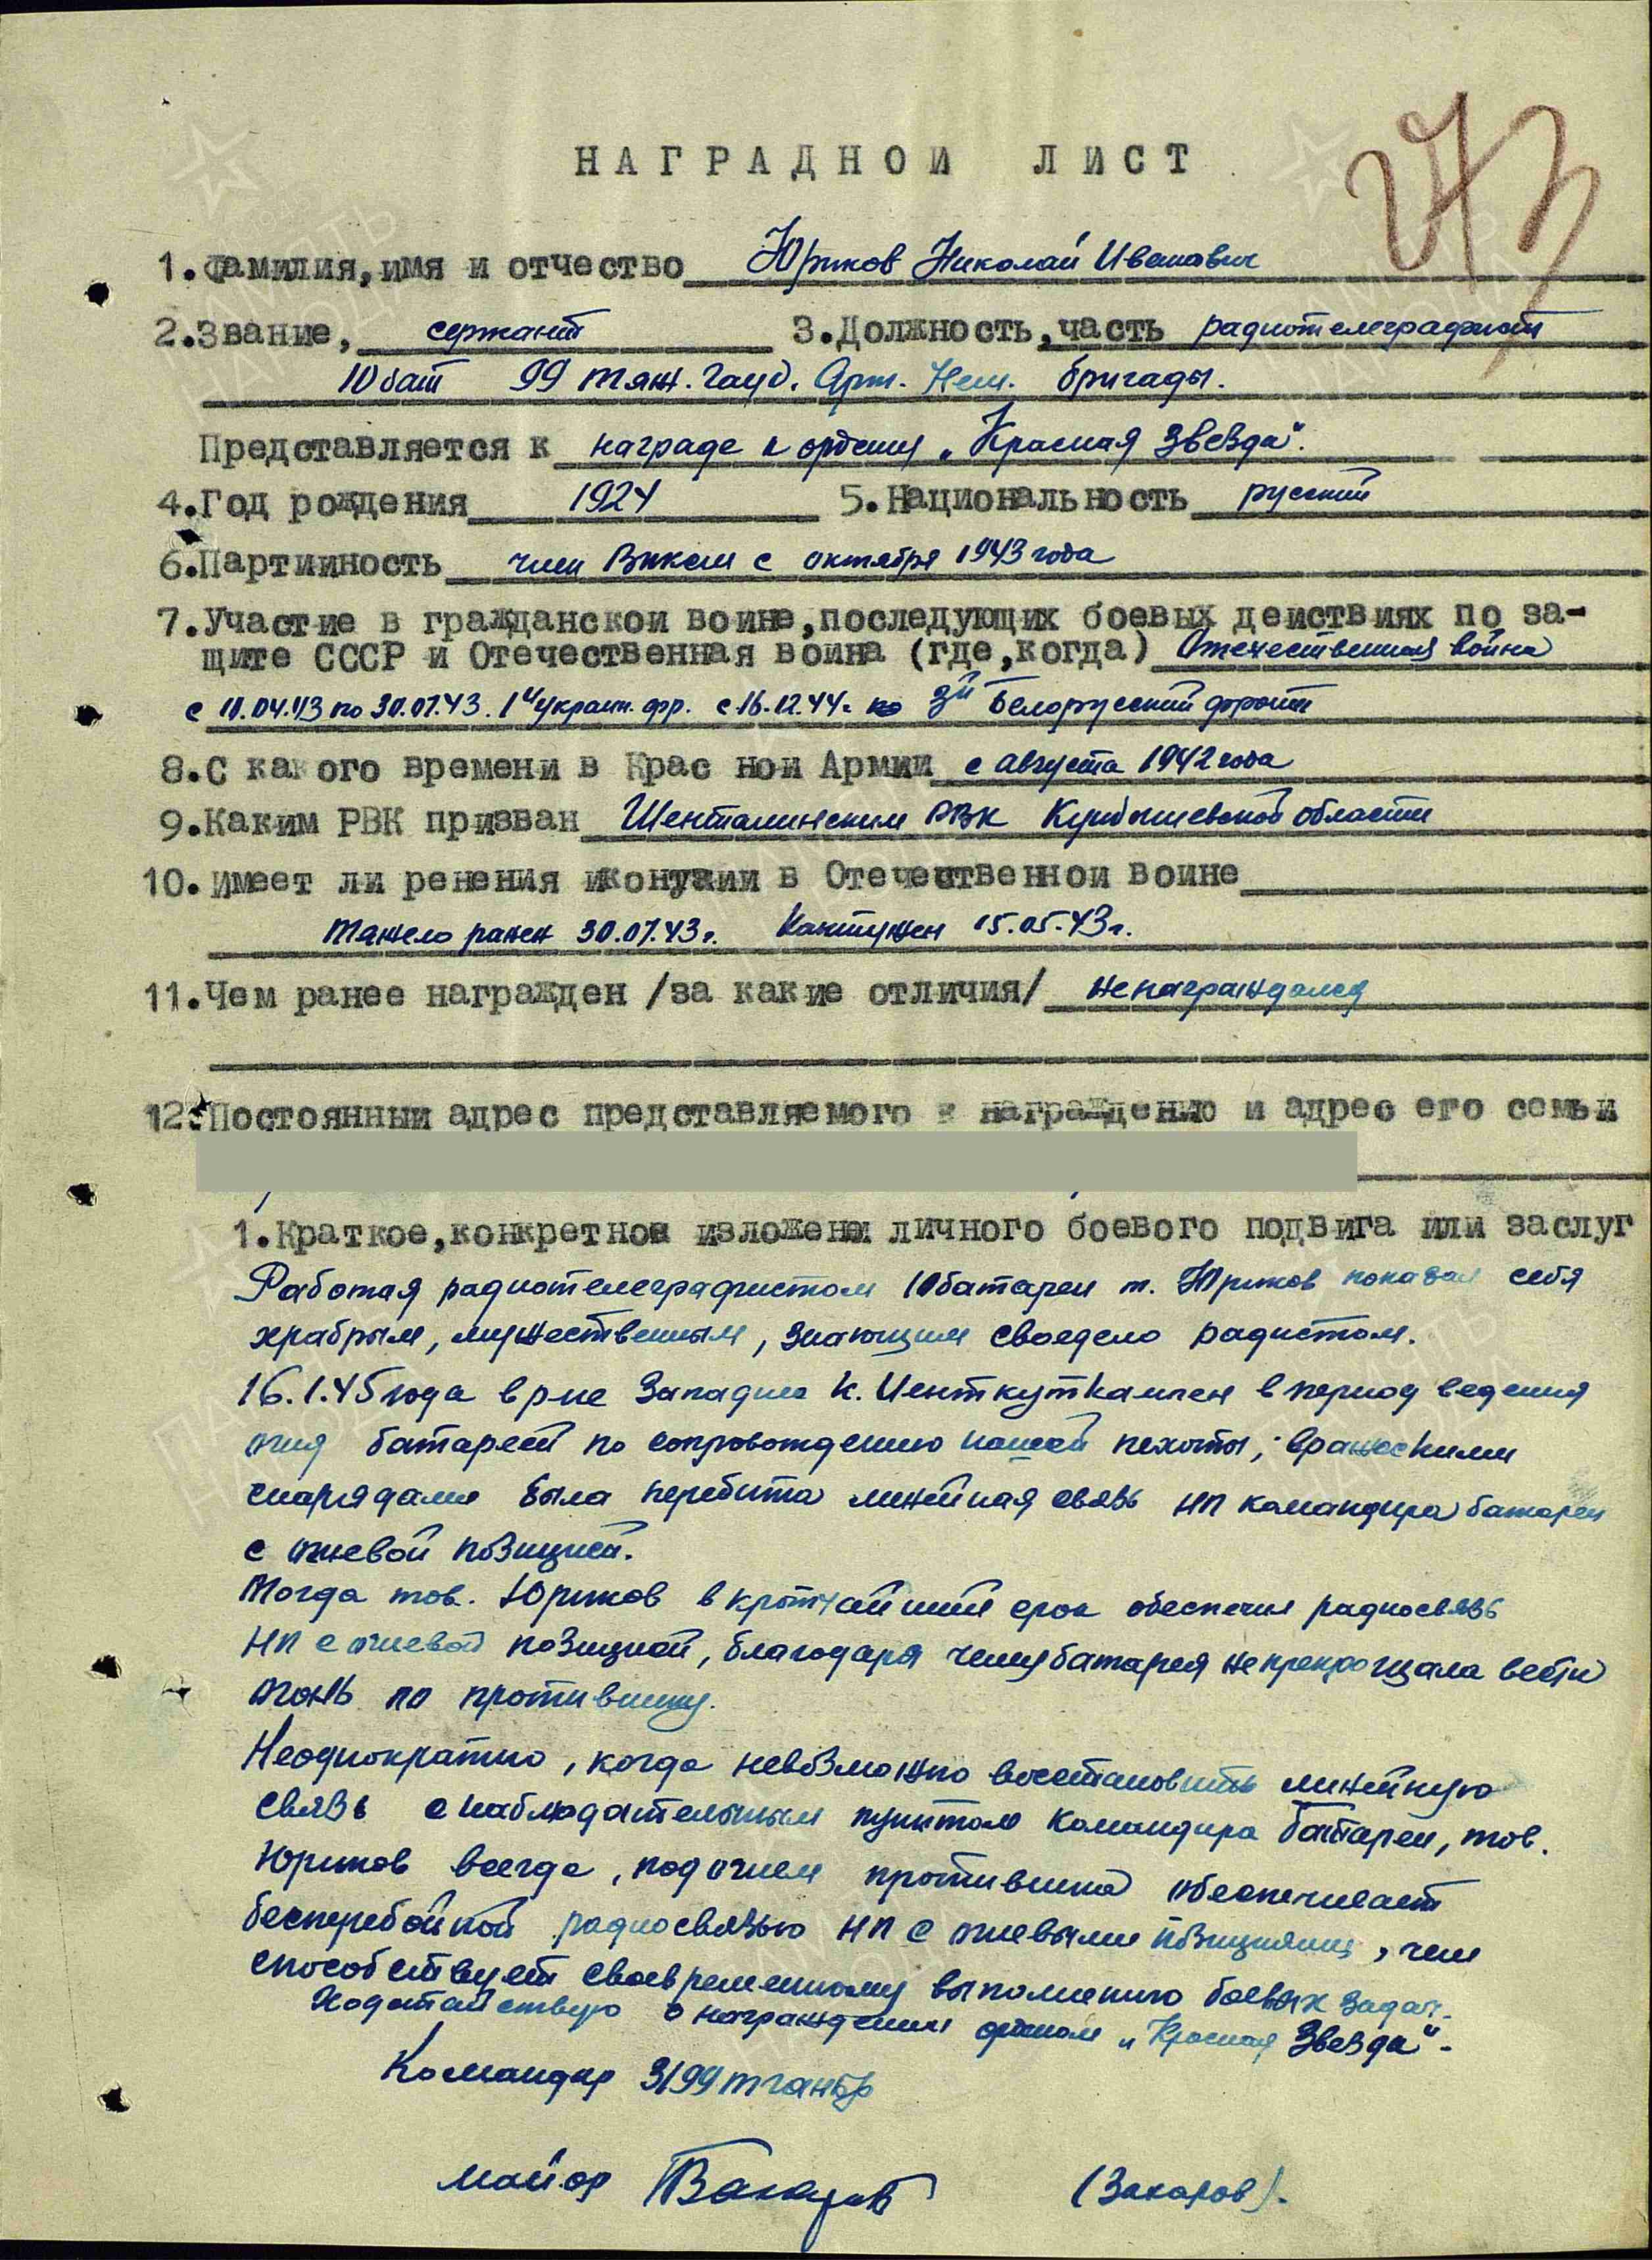 273
НАГРАДНОЙ ЛИСТ
1. Фамилия, имя и отчество Юртков Николай Иванович
2. Звание, сержант 3. Должность, часть радиотелеграфист
10 бат 99 тяж. Гауб. Арт. Неш. бригады.
Представляется к награде к ордену „Красная Звезда".
4. Год рождения 1924 5. Национальность русский
6. Партийность член ВЛКСМ с октября 1943 года
7. Участие в гражданской войне, последующих боевых действиях по за-
щите СССР и Отечественная война (где, когда) Отечественная война
по 30.07.43. 1й украин. фр. с 16.12.44г. 3й Белорусский фронт
8. С какого времени в Красной Армии с августа 1942 года
9. Каким РВК призван Шенталинским РВК Куйбышевской области
10. имеет ли ренения иконузии в Отечественной войне
тяжело ранен 30.07.43г. Контужен 15.05.43г.
11. Чем ранее награжден /за какие отличия/ не награждался
12. Постоянный адрес представляемого к награждению и адрес его семьи
1. Краткое, конкретное изложени личного боевого подвига или заслуг
Работая радиотелеграфистом 10 батареи т. Юртков показал себя
храбрым, мужественным, знающим свое дело радистом.
16.1.45 года в р-не Западнее К. в период ведения
огня батареей по сопровождению нашей пехоты, вражескими
снарядами была перебита линейная связь НП командира батареи
с огневой позицией.
Тогда тов. Юртков в кротчайший срок обеспечил радиосвязь
НП с огневой позицией, благодаря чему батарея не прекрощала вести
огонь по противнику.
Неоднократно, когда невозможно восстановить линейную
связь с наблюдательным пунктом командира батареи, тов.
Юртков всегда, под огнем противника обеспечивает
бесперебойной радиосвязью НП с огневыми позициями, чем
способствует своевременному выполнению боевых задач.
Ходатайствую о награждении орденом „Красная Звезда".
Командир 3/99 тганбр
майор (Захаров).